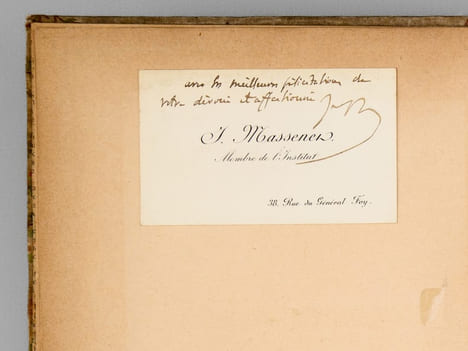 avec les meilleures félicitations de
votre dévoué et affectionné
J. Massenet.
Membre de l'Institut
38, Rue du Général Foy.